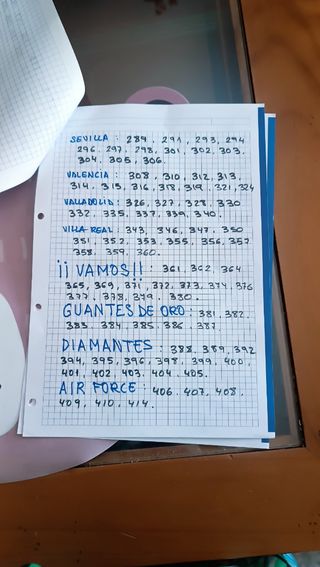 SEVILLA : 289. 291, 293, 294
296. 297. 298. 301. 302. 303.
304. 305. 306.
VALENCIA : 308, 310, 312, 313,
314. 315. 316. 318. 319. 321, 324
VALLADOLID : 326, 327, 328. 330
332. 335. 337. 339. 340.
VILLA REAL : 343, 346, 347. 350
351. 352. 353. 355. 356. 357
358. 359. 360.
¡¡ VAMOS!! : 361. 362, 364
365, 369, 371, 372. 373. 374. 376
377. 378. 379. 380.
GUANTES DE ORO : 381, 382.
383. 384. 385. 386. 387
DIAMANTES : 388. 389, 392
394, 395. 396, 398. 399. 400
401, 402, 403. 404. 405.
AIR FORCE : 406. 407. 408.
409, 410. 414.